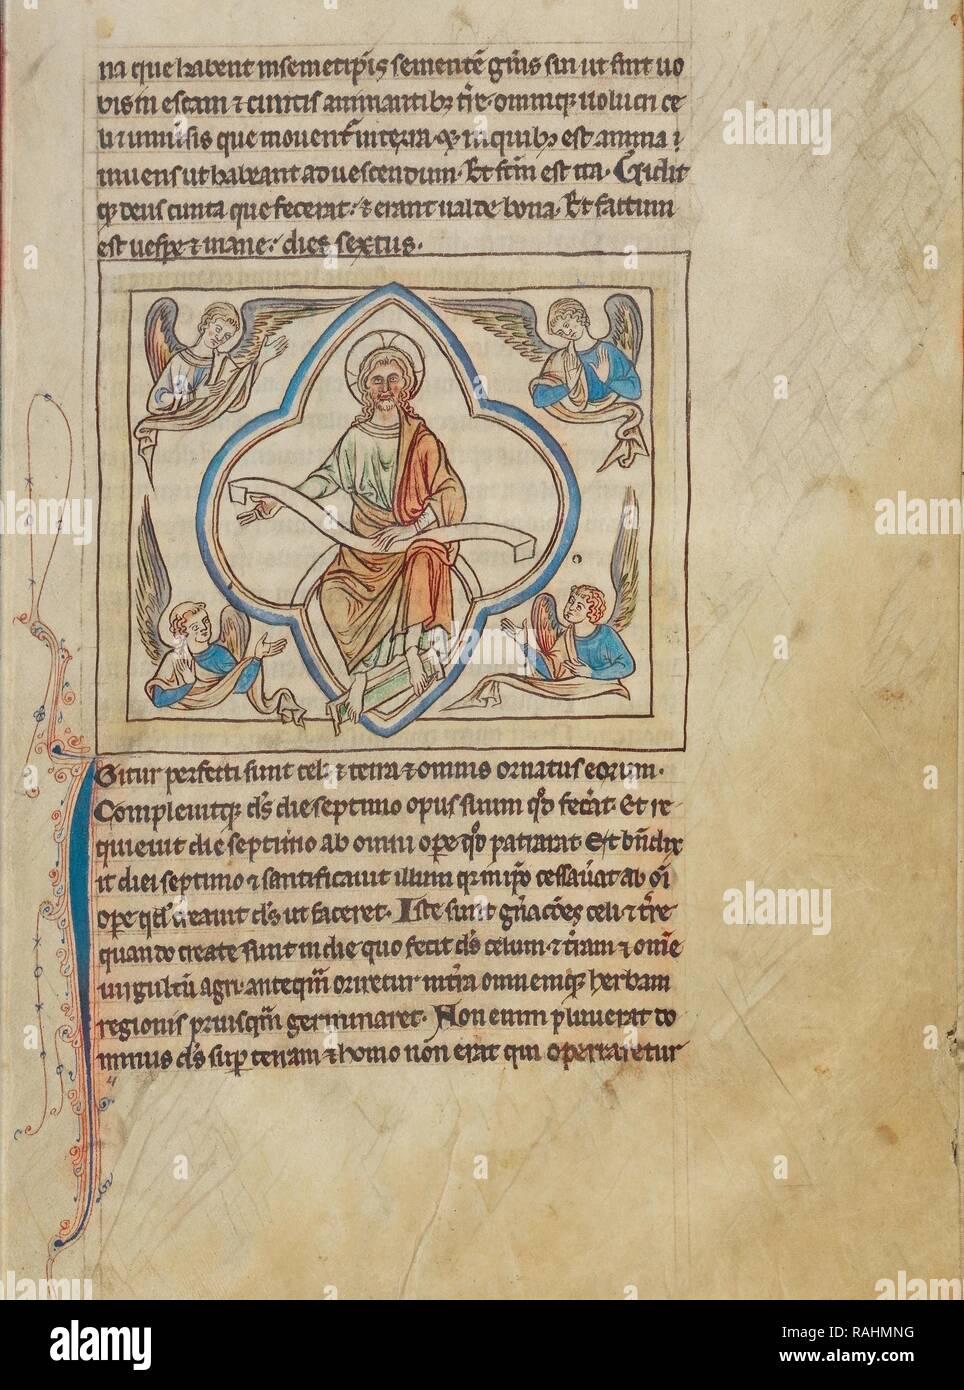 na que habent in semetip̄is sementē gn̄is sui ut sint uo
bis in escam ⁊ cunctis animantibȝ tr̄e. omniqȝ uolucri ce
li ⁊ uniūsis que mouent̄ in terra. ⁊ in quibȝ est anima i
uiuens ut habeant ad uescendum. Et fc̄m est ita. Uidit
qȝ deus cuncta que fecerat. ⁊ erant ualde bona. Et factum
est uesp̄e ⁊ mane. dies sextus.
Igitur perfecti sunt celi ⁊ terra ⁊ omnis ornatus eorum.
Compleuitqȝ ds̄ die septimo opus suum qd̄ fec̄at. Et re
quieuit die septimo ab omni ope qd̄ patrarat Et bn̄dix
it diei septimo ⁊ sanctificauit illum qr̄ in ip̄o cessau̅at ab oī
ope qd̄ creauit ds̄ ut faceret. Iste sunt gn̄acōes celi ⁊ tr̄e
quando create sunt in die quo fecit ds̄ celum ⁊ tr̄am ⁊ om̄e
uirgultū agri. anteqm̄ oriretur in tr̄a omnemqȝ herbam
regionis priusqm̄ germinaret. Non enim pluuerat do
minus ds̄ sup terram ⁊ homo non erat qui operraretur
alamy
alamy
alamy
alamy
alamy
alamy
alamy
alamy
Image ID: RAHMNG
www.alamy.com